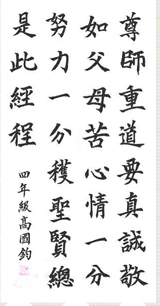 尊師重道要真誠敬
如父母苦心情一分
努力一分穫聖賢總
是此經程
四年級高國鈞